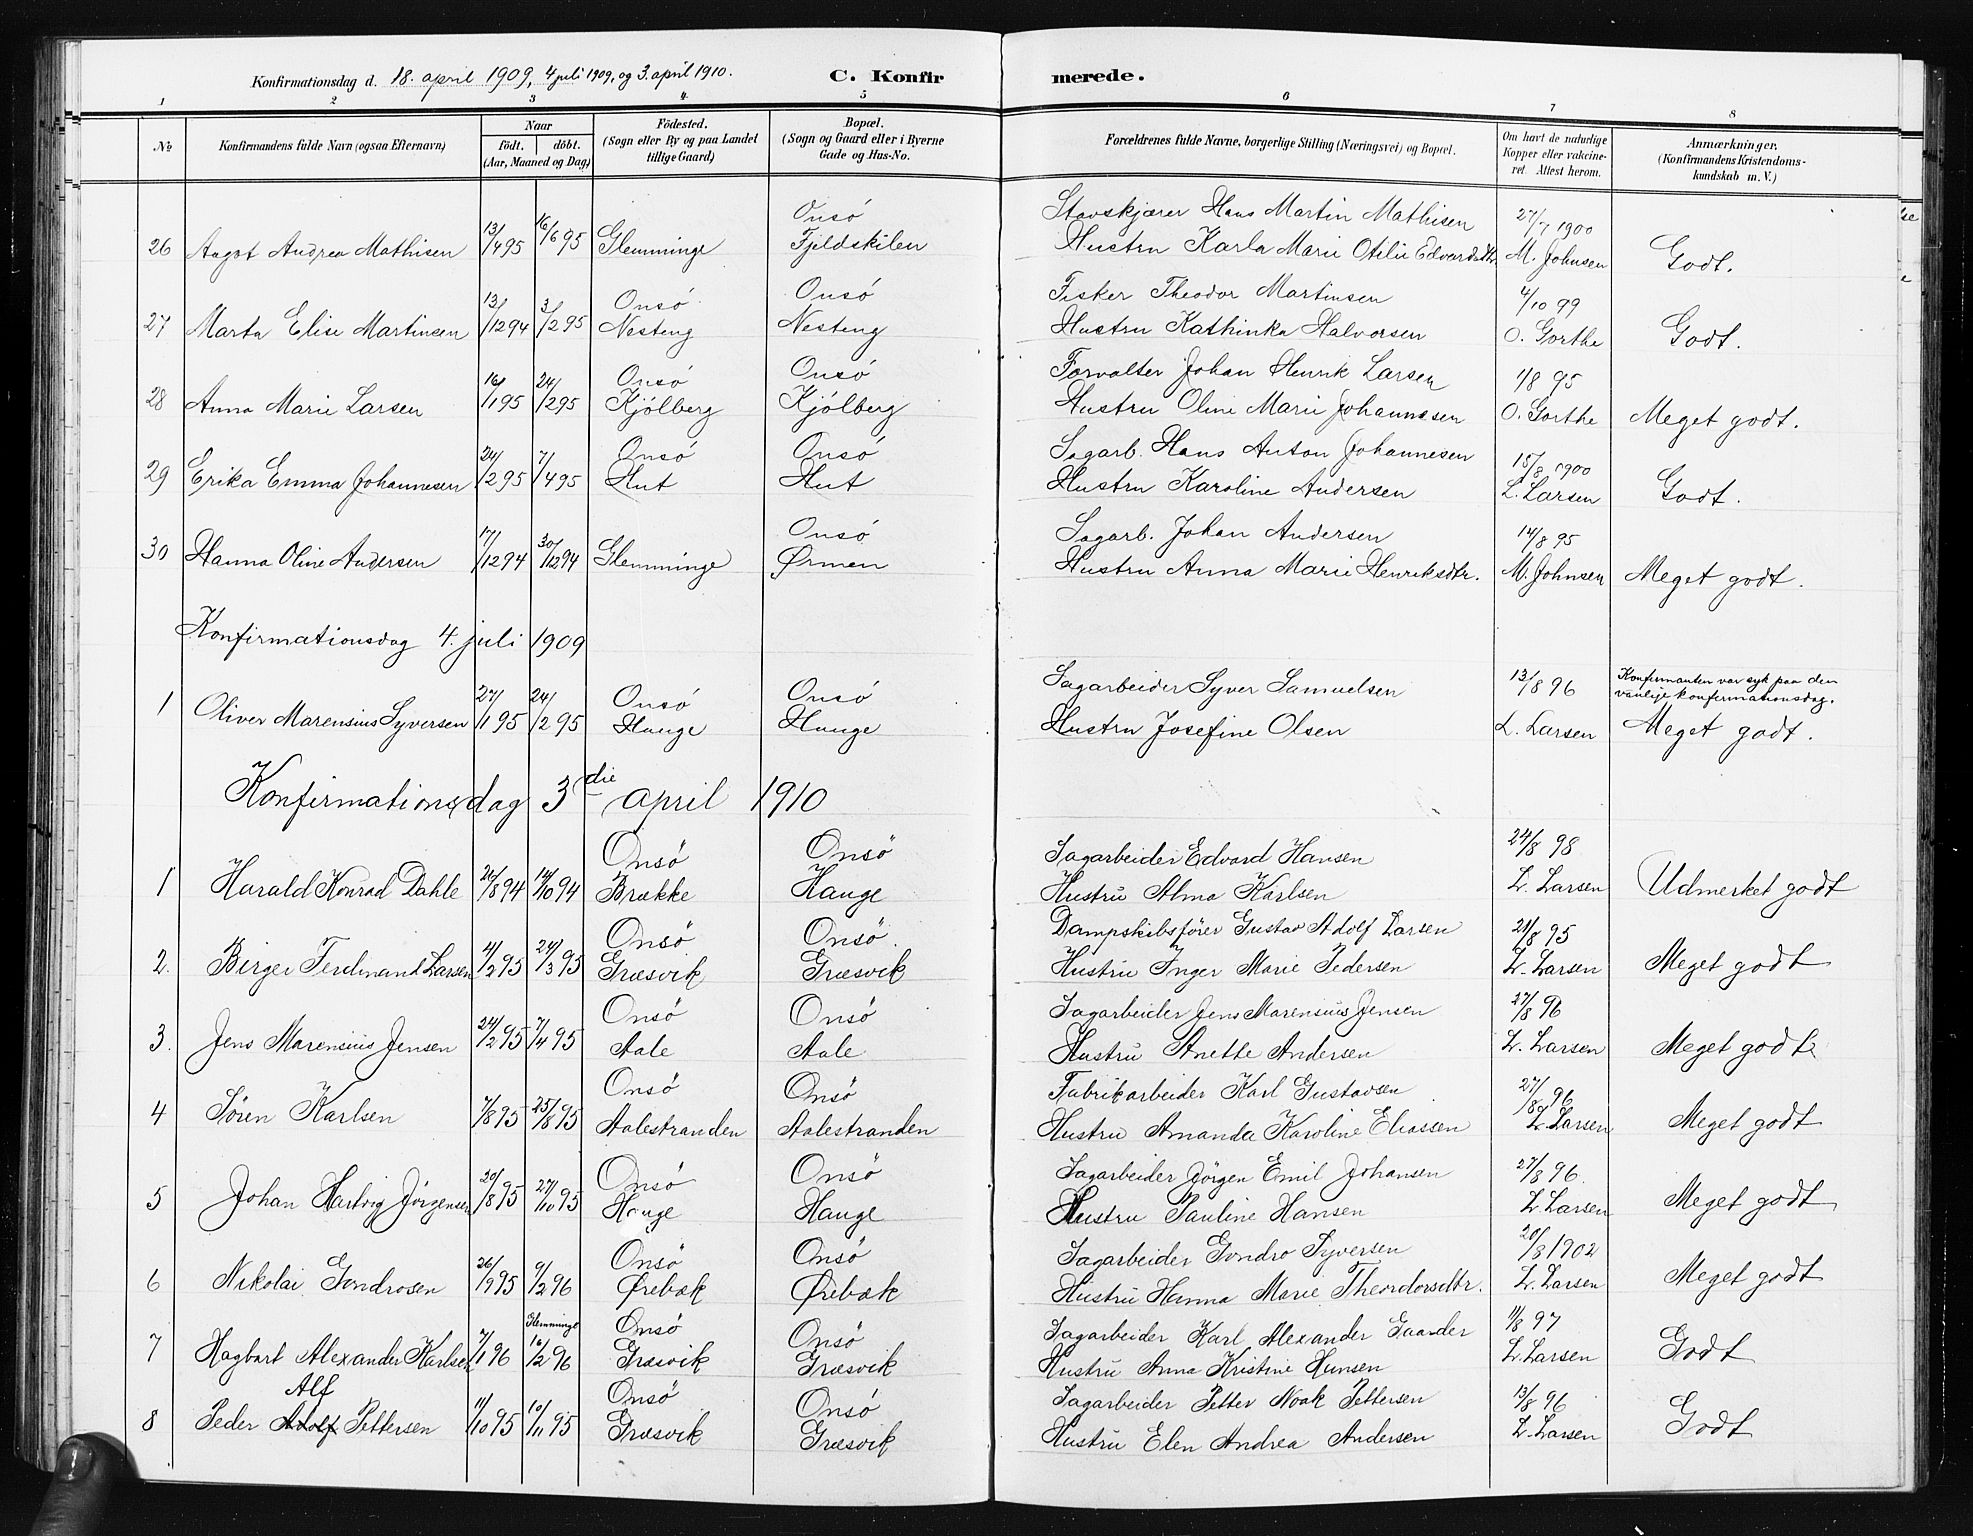 Konfirmationsdag d. 18. april 1909, 4 juli 1909, og 3. april 1910. C. Konfirmerede.
1 2 3 4 5 6 7 8
№ Konfirmandens fulde Navn (ogsaa Efternavn) Naar født. døbt. (Aar, Maaned og Dag) Fødested. (Sogn eller By og paa Landet tillige Gaard) Bopæl. (Sogn og Gaard eller i Byerne Gade og Hus-No. Forældrenes fulde Navne, borgerlige Stilling (Næringsvei) og Bopæl. Om havt de naturlige Kopper eller vakcineret. Attest herom. Anmærkninger. (Konfirmandens Kristendomskundskab m. V.)
Onsö Stavskjærer Hans Martin Mathisen 27/7 1900
26 Aagot Andrea Mathisen 13/4 95 16/6 95 Glemminge Fjeldskilen Hustru Karla Marie Otilie Edvardsdtr. M. Johnsen Godt.
Onsö Onsö Fisker Theodor Martinsen 4/10 99
27 Marta Elise Martinsen 13/12 94 3/2 95 Nesteng Nesteng Hustru Kathinka Halvorsen O. Gorthe Godt.
Onsö Onsö Forvalter Johan Henrik Larsen 1/8 95
28 Anna Marie Larsen 16/1 95 24/2 95 Kjölberg Kjölberg Hustru Oline Marie Johannesen O. Gorthe Meget godt.
Onsö Onsö Sagarb. Hans Anton Johannesen 15/8 1900
29 Erika Emma Johannesen 24/2 95 7/4 95 Hut Hut Hustru Karoline Andersen L. Larsen Godt.
Onsö Sagarb. Johan Andersen 14/8 95
30 Hanna Oline Andersen 17/12 94 30/12 94 Glemminge Ørmen Hustru Anna Marie Henriksdtr. M. Johnsen Meget godt.
Konfirmationsdag 4. juli 1909
Onsö Onsö Sagarbeider Syver Samuelsen 13/8 96 Konfirmanten var syk paa den vanlige konfirmationsdag.
1 Oliver Marensius Syversen 27/1 95 24/2 95 Hauge Hauge Hustru Josefine Olsen L. Larsen Meget godt.
Konfirmationsdag 3die april 1910
Onsö Onsö Sagarbeider Edvard Hansen 24/8 98
1 Harald Konrad Dahle 24/8 94 14/10 94 Brække Hauge Hustru Alma Karlsen L. Larsen Udmerket godt
Onsö Onsö Dampskibsfører Gustav Adolf Larsen 21/8 95
2. Birger Ferdinand Larsen 4/2 95 24/3 95 Græsvik Græsvik Hustru Inger Marie Pedersen L. Larsen Meget godt
Onsö Onsö Sagarbeider Jens Marensius Jensen 27/8 96
3. Jens Marensius Jensen 24/2 95 7/4 95 Aale Aale Hustru Anette Andersen L. Larsen Meget godt
Onsö Onsö Fabrikarbeider Karl Gustavsen 27/8 96
4 Sören Karlsen 7/8 95 25/8 95 Aalestranden Aalestranden Hustru Amanda Karoline Eliassen L. Larsen Meget godt
Onsö Onsö Sagarbeider Jörgen Emil Johansen 27/8 96.
5 Johan Hartvig Jörgensen 20/8 95 27/10 95 Hauge Hauge Hustru Pauline Hansen L. Larsen Meget godt
Onsö Onsö Sagarbeider Gondro Syversen 20/8 1902
6 Nikolai Gondrosen 26/9 95 9/2 96 Ørebæk Ørebæk Hustru Hanna Marie Theordorsdtr. L. Larsen Meget godt
Glemminge Onsö Onsö Sagarbeider Karl Alexander Gaarder 11/8 97
7 Hagbart Alexander Karlsen 7/1 96 16/2 96 Græsvik Græsvik Hustru Anna Kristine Hansen L. Larsen Godt
Alf Onsö Onsö Sagarbeider Petter Noak Pettersen 13/8 96
8 Peder Adolf Pettersen 11/10 95 10/11 95 Græsvik Græsvik Hustru Elen Andrea Andersen L. Larsen Godt